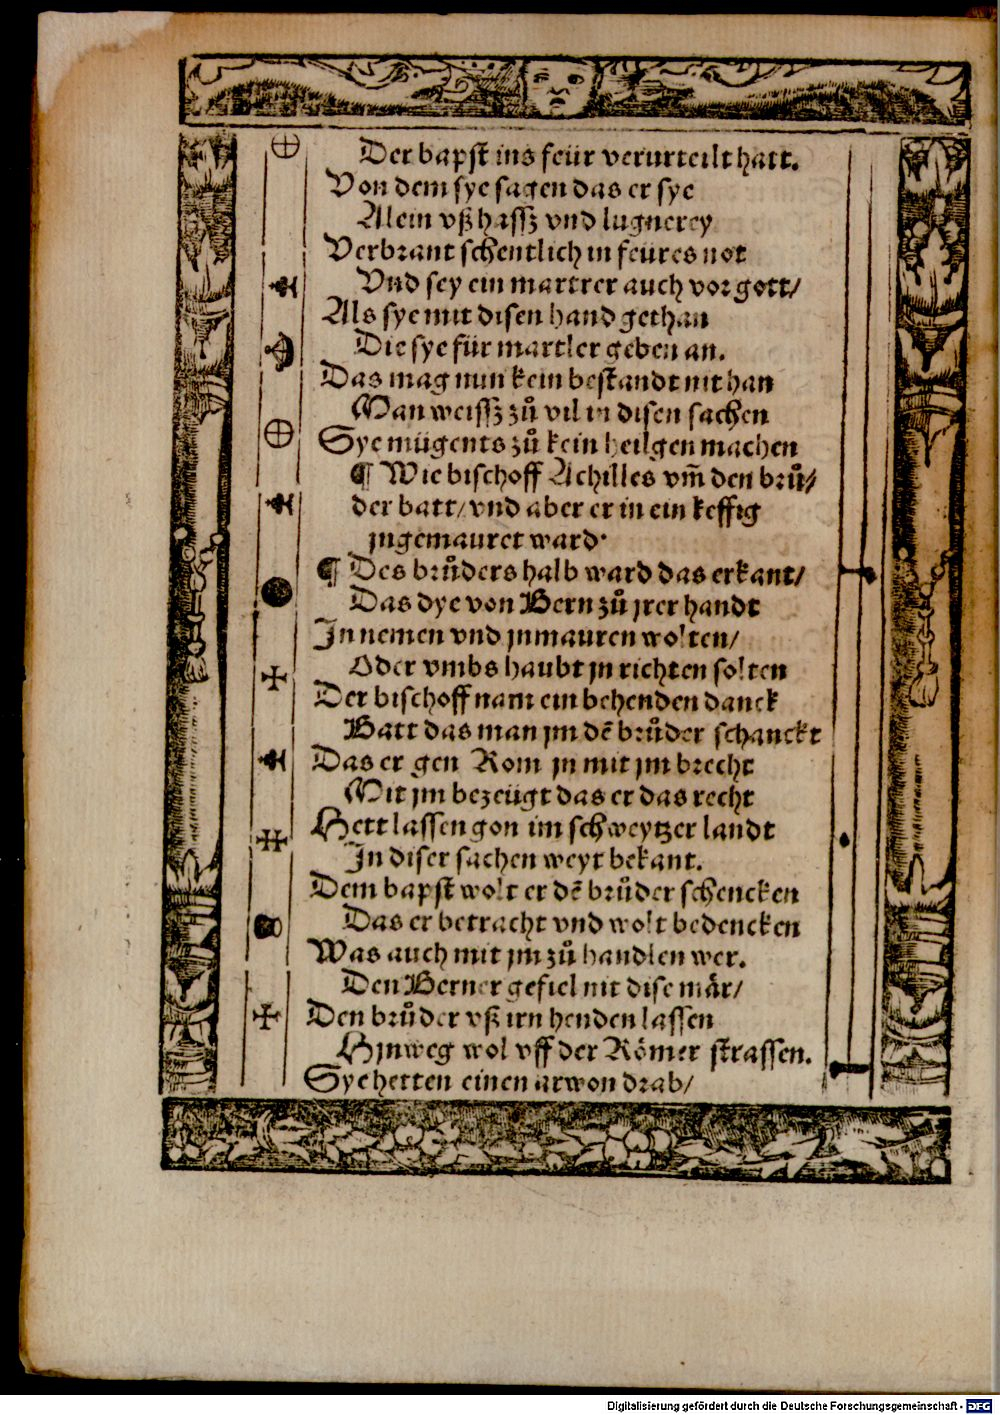 Der bapst ins feür verurteilt hatt.
Von dem sye sagen das er sye
Alein vß hassz vnd lugnerey
Verbrant schentlich in feures not
Vnd sey ein martrer auch vor gott/
Als sye mit disen hand gethan
Die sye für martler geben an.
Das mag nun kein bestandt nit han
Man weissz zuͦ vil in disen sachen
Sye mügents zuͦ kein heilgen machen
¶ Wie bischoff Achilles vm̃ den bruͦ/
der batt/ vnd aber er in ein keffig
jngemauret ward·
¶ Des bruͦders halb ward das erkant/
Das dye von Bern zuͦ jrer handt
In nemen vnd jnmauren wolten/
Oder vmbs haubt jn richten solten
Der bischoff nam ein behenden danck
Batt das man jm dẽ bruͦder schanckt
Das er gen Rom jn mit jm brecht
Mit jm bezeügt das er das recht
Hett lassen gon im schweytzer landt
In diser sachen weyt bekant.
Dem bapst wolt er dẽ bruͦder schencken
Das er betracht vnd wolt bedencken
Was auch mit jm zuͦ handlen wer.
Den Berner gefiel nit dise mär/
Den bruͦder vß irn henden lassen
Hjnweg wol vff der Römer strassen.
Sye hetten einen arwon drab/
Digitalisierung gefördert durch die Deutsche Forschungsgemeinschaft - DFG